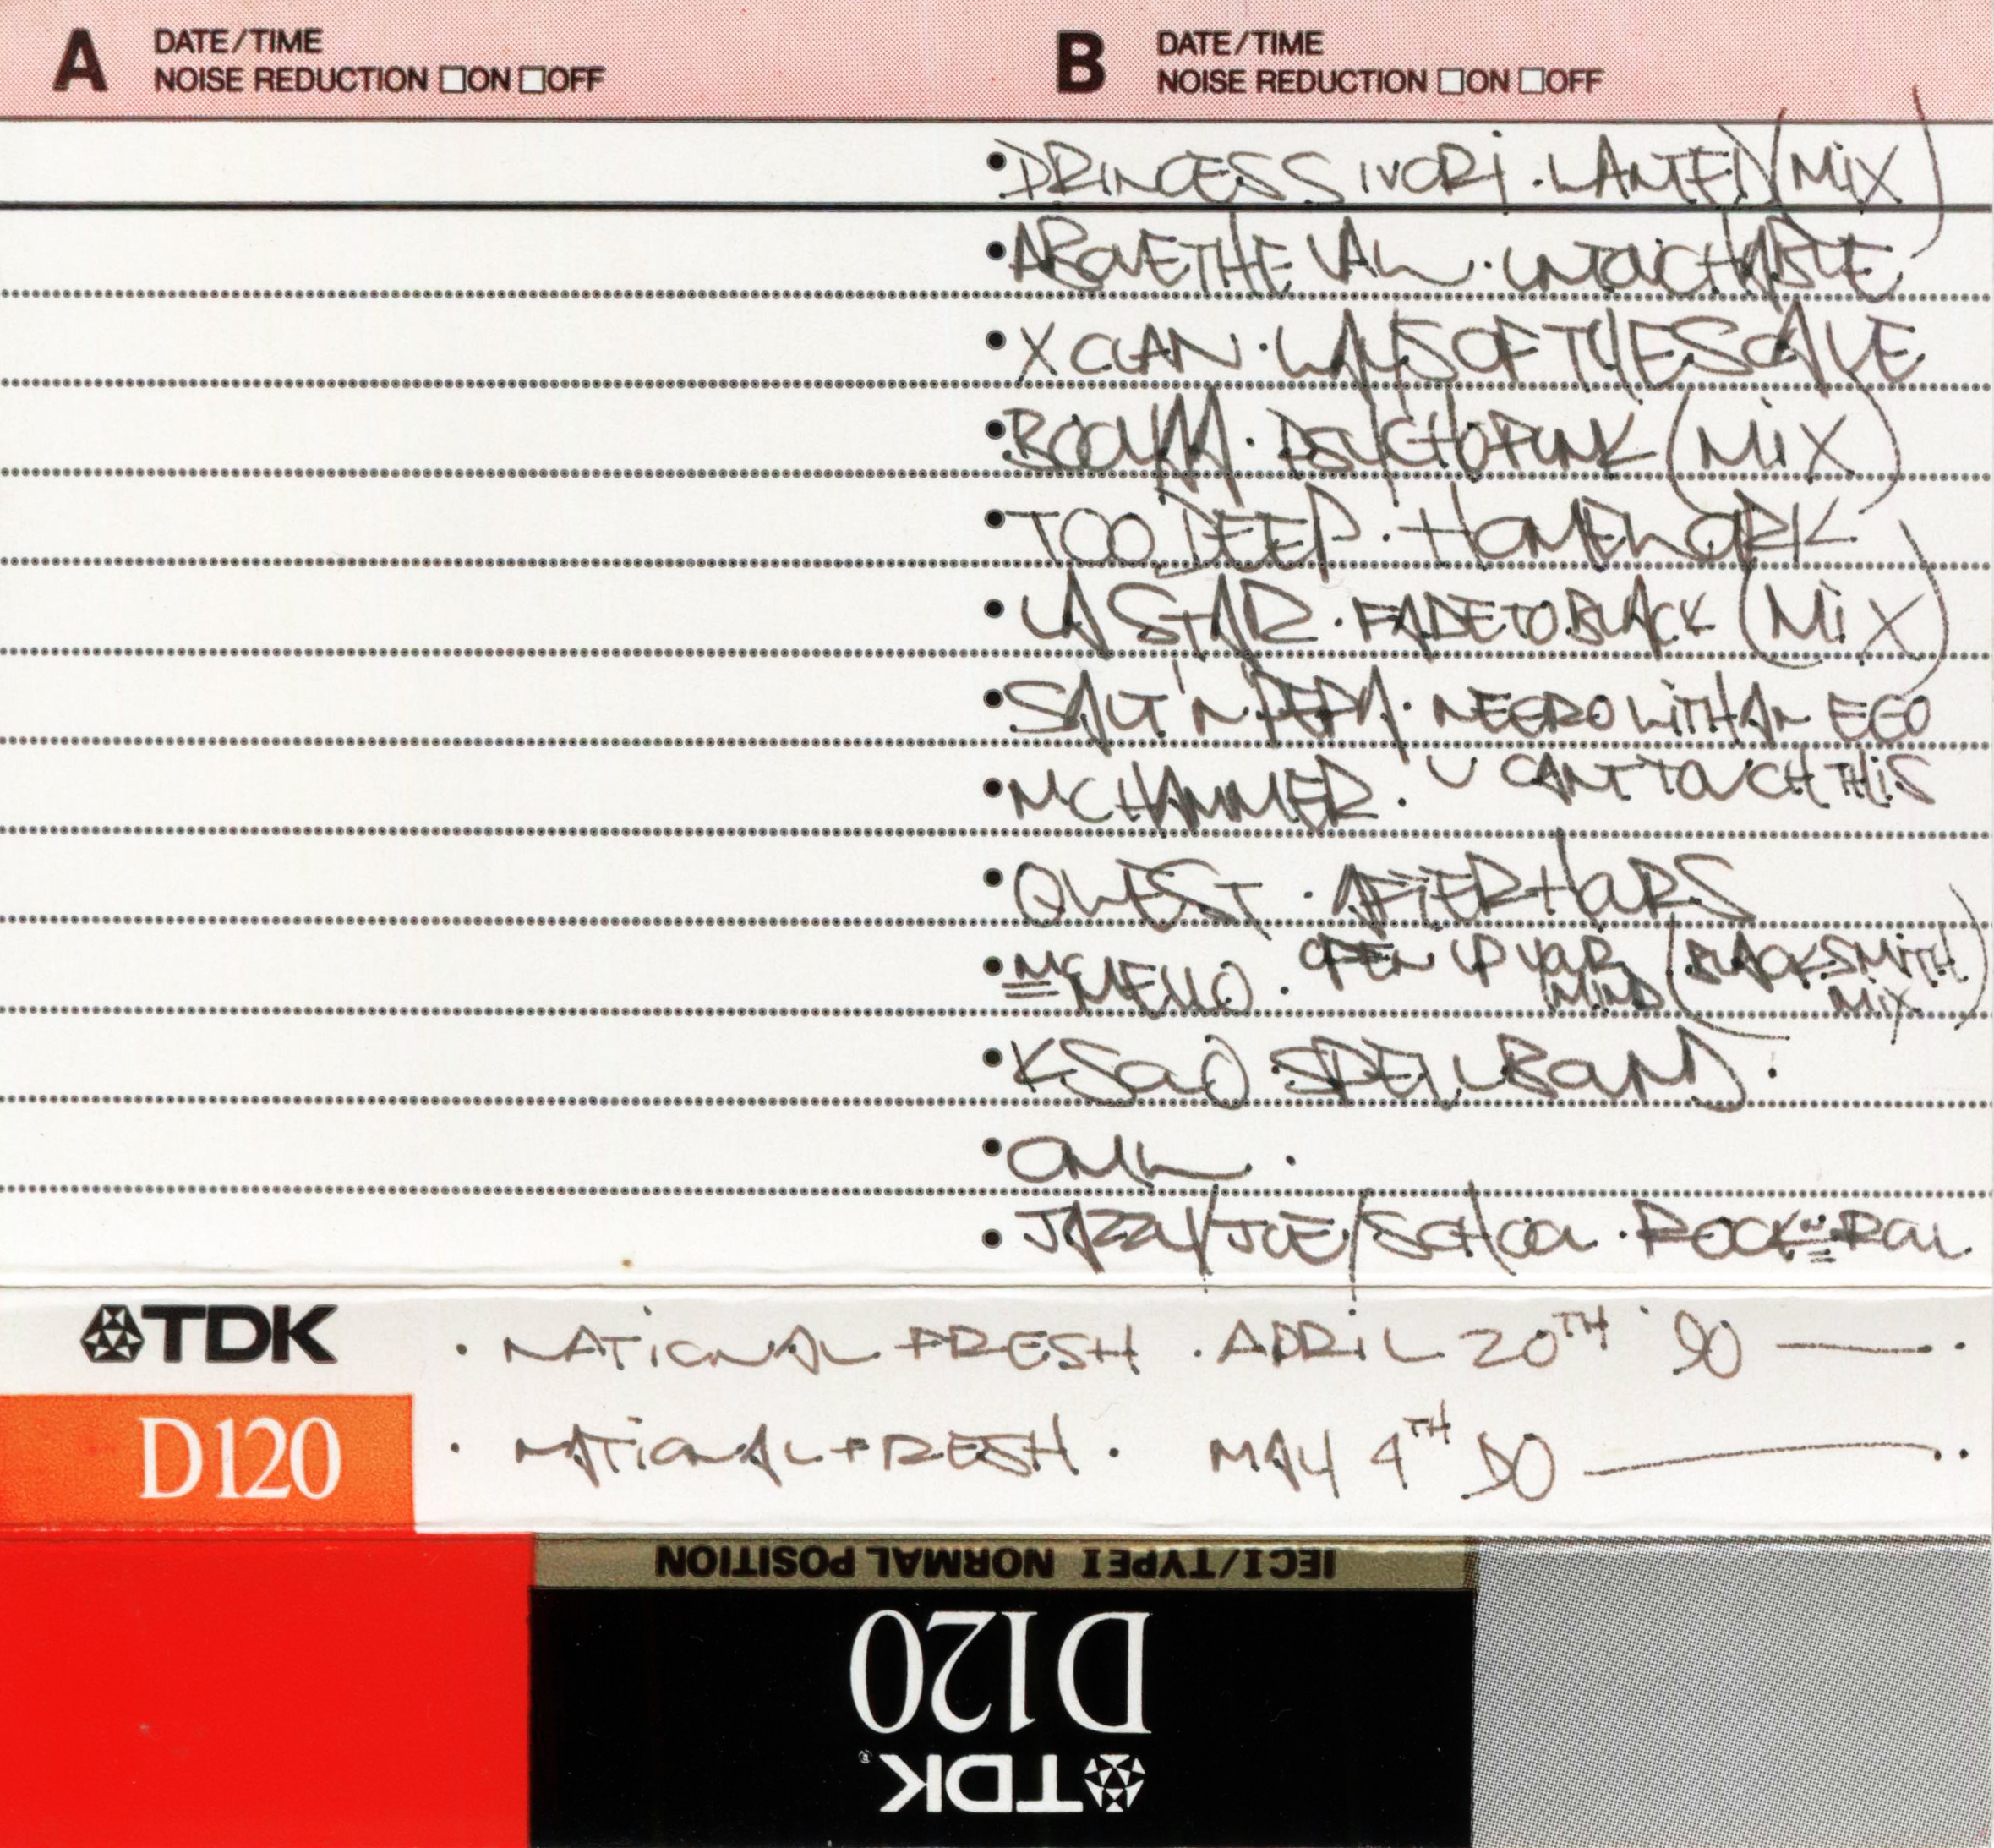 A DATE/TIME
NOISE REDUCTION □ON □OFF
B DATE/TIME
NOISE REDUCTION □ON □OFF
•PRINCESS IVORI . (MIX)
•ABOVE THE LAW . UNTOUCHABLE
•X CLAN . WAYS OF THE SCALE
• . PSYCHOFUNK (MIX)
•TOO DEEP . HOMEWORK
•LA STAR . FADE TO BLACK (MIX)
•SALT 'N' PEPA . NEGRO WITH AN EGO
•MC HAMMER . U CANT TOUCH THIS
•QUEST . AFTER HOURS
•MC MELLO . OPEN UP YOUR MIND (BLACKSMITH MIX)
• SPELLBOUND .
•
•JAZZY/JOE/SCHOOL . ROCK 'N' ROLL
TDK . NATIONAL FRESH . APRIL 20TH '90 —.
D120 . NATIONAL FRESH . MAY 4TH 90 —.
IECI/TYPEI NORMAL POSITION
D120
TDK®